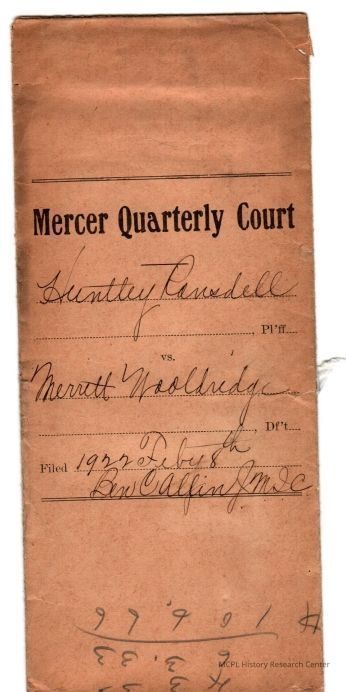 Mercer Quarterly Court
Huntley Ransdell
, Pl'ff
vs.
Merrett Wooldridge
, Df't
Filed 1922 Feby 8th
Ben C Allin J M Q C
MCPL History Research Center